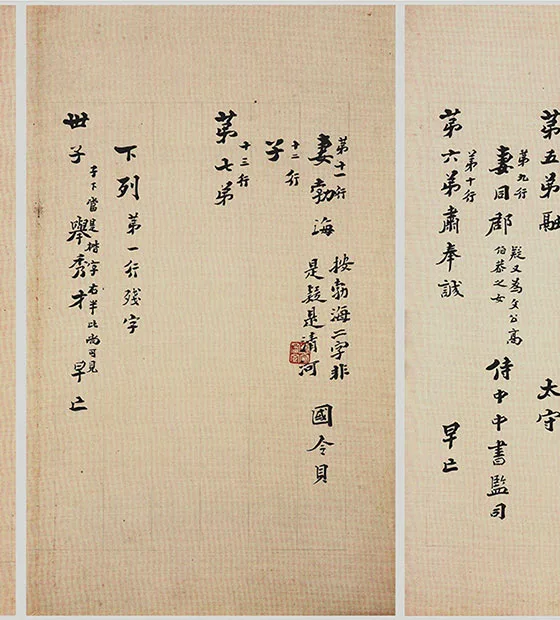 第五弟融 太守
第九行
妻同郡 疑又為文公高
伯恭之女 侍中中書監司
第十行
第六弟肅奉誠 早亡
第十一行
妻勃海 按勃海二字非
是疑是清河 國令貝
十二行
子
十三行
第七弟
下列 第一行殘字
世子 子下當是楷字右半比尚可見 舉秀才 早亡